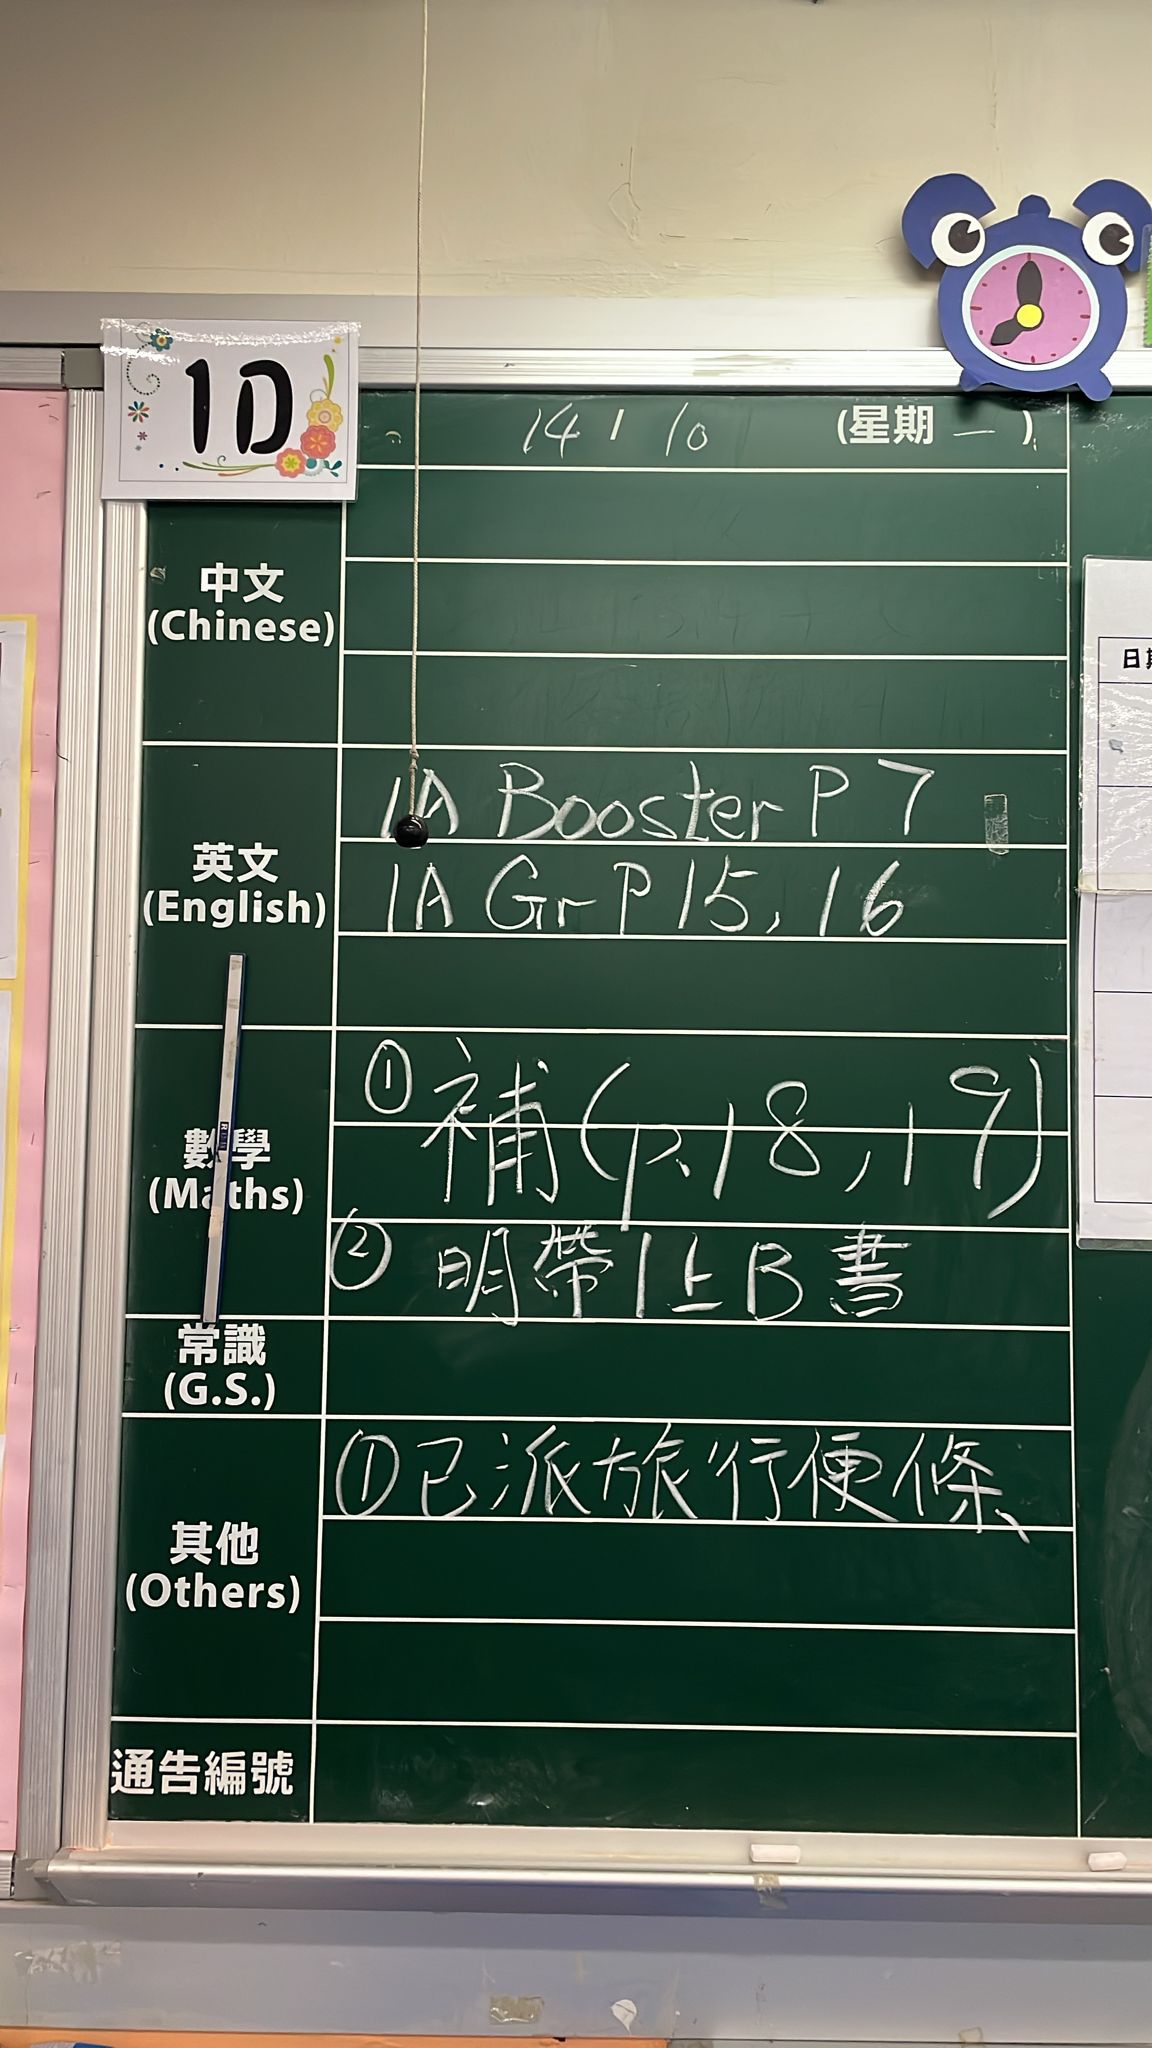 1D
14 / 10 (星期一)
中文
(Chinese)
英文
(English)
1A Booster P 7
1A Gr P 15, 16
數學
(Maths)
① 補 (p.18, 19)
② 明帶1上B書
常識
(G.S.)
其他
(Others)
① 已派旅行便條、
通告編號